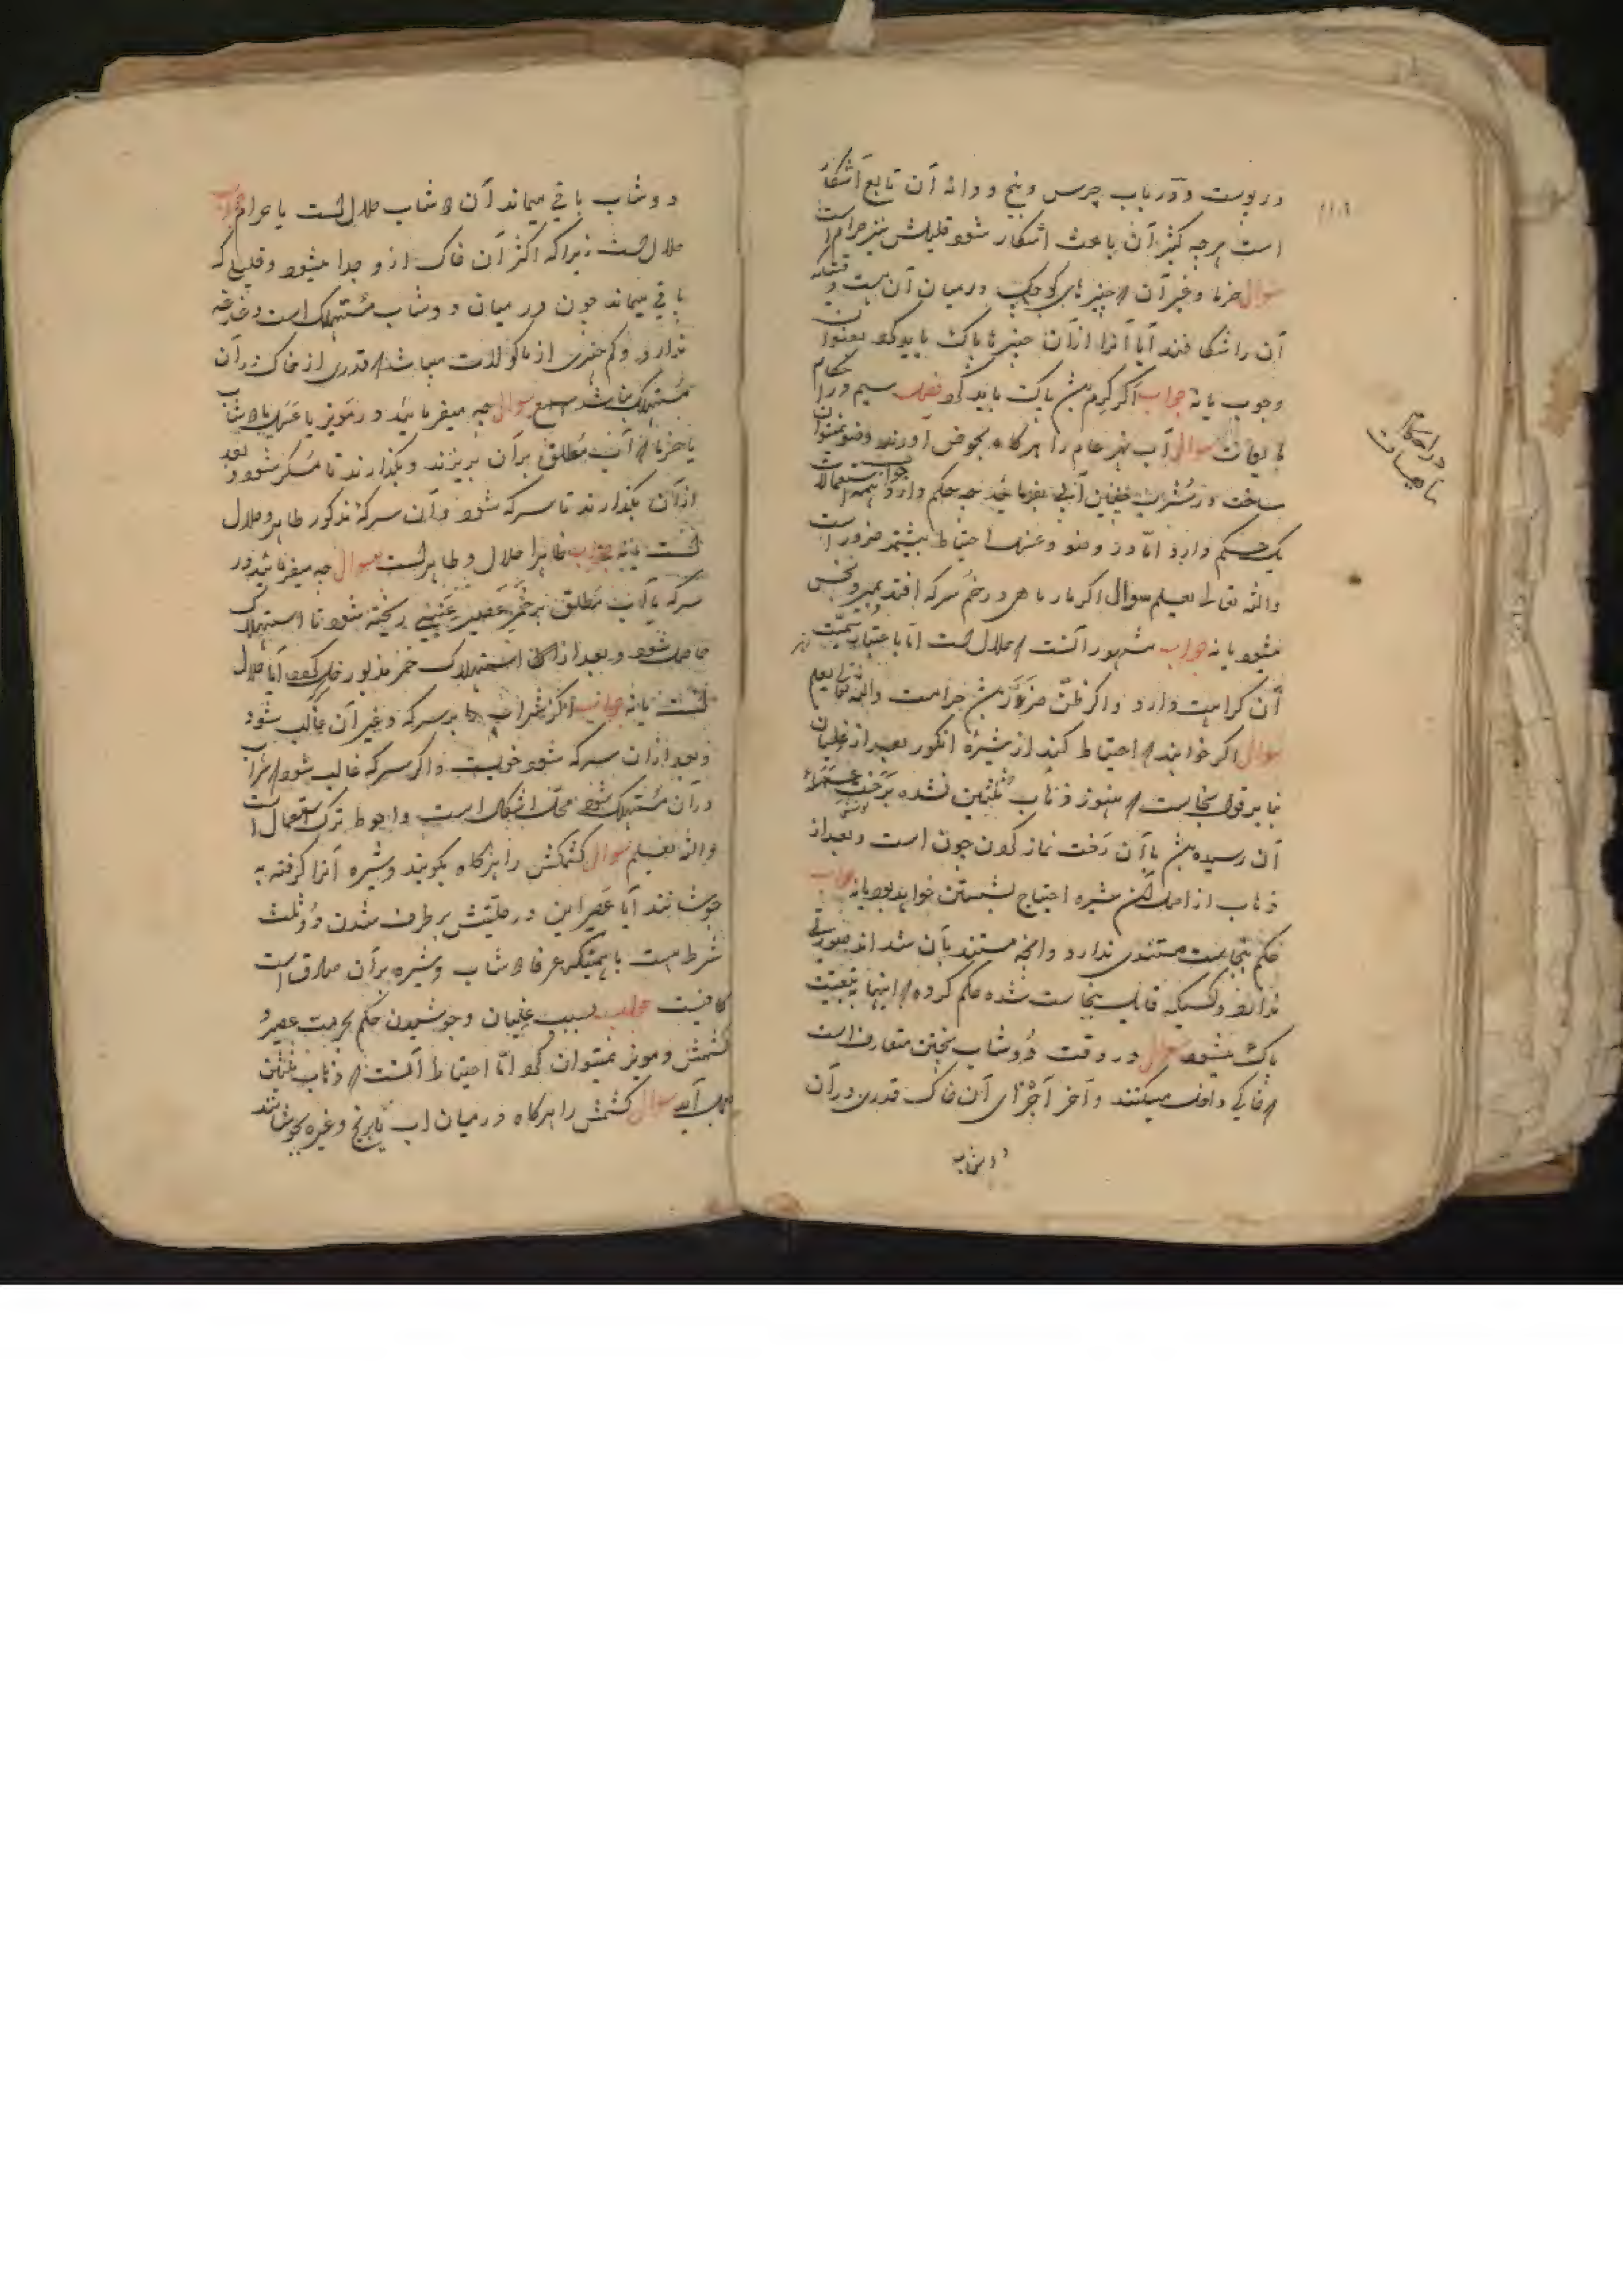 در پوست و در باب چرس و بنج و دانه آن تابع اسکار
است هر چه کثیر آن باعث اسکار شود قلیلش نیز حرام است
سوال خرما و غیر آن که چیزهای کوچک در میان آن هست
آن را شکافند آیا آنرا از آن چیز پاک باید کرد بعنوان
وجوب یا نه جواب اگر کرم باشد پاک باید کرد فصل سیم در احکام
مایعات سوال آب نهر عام را هرگاه بحوض آورند وضو نمیتوان
ساخت در شرب چنین آبی میفرمایند چه حکم دارد جواب همه استعمالات
یک حکم دارد اما در وضو و غسل احتیاط بیشتر ضرور است
والله تعالی یعلم سوال اگر مار ماهی در خم سرکه افتد بمیرد نجس
میشود یا نه جواب مشهور آنست که حلال است اما باعتبار سمیت
آن کراهت دارد و اگر ظن ضرر باشد حرامست والله تعالی یعلم
سوال اگر خواهند که احتیاط کنند از شیره انگور بعد از غلیان
بنا بر قول نجاست که هنوز ذهاب ثلثین نشده برخت
آن رسیده باشد با آن رخت نماز کردن چون است و بعد از
ذهاب از اصل شیره احتیاج بشستن خواهد بود یا نه جواب
حکم نجاست مستندی ندارد و آنچه مستند بآن شده‌اند صورتی
ندارد و کسیکه قایل بنجاست شده حکم کرده که اینها بتبعیت
پاک میشود سوال در وقت دوشاب پختن متعارف است
که خاکی داخل میکنند و آخر اجزای آن خاک قدری در آن
دوشاب
در احکام
مایعات
دوشاب باقی میماند آن دوشاب حلال است یا حرام جواب
حلال است زیرا که اکثر آن خاک ازو جدا میشود و قلیلی که
باقی میماند چون در میان دوشاب مستهلک است
ندارد و کم چیزی از ماکولات میباشد که قدری از خاک در آن
مستهلک نباشد سوال چه میفرمایند در مویز یا عسل یا دوشاب
یا خرما که آب مطلق بر آن بریزند و بگذارند تا مسکر شود و بعد
از آن بگذارند تا سرکه شود و آن سرکه مذکور طاهر و حلال
است یا نه جواب ظاهرا حلال و طاهر است سوال چه میفرمایند در
سرکه یا آب مطلق بر خمر عصیر عنبی ریخته شود تا استهلاک
حاصل شود و بعد از آن استهلاک خمر مزبور خل گردد آیا حلال
است یا نه جواب اگر شراب بر سرکه و غیر آن غالب شود
و بعد از آن سرکه شود خوبست و اگر سرکه غالب شود که شراب
در آن مستهلک شود محل اشکال است و احوط ترک استعمال است
والله یعلم سوال کشمش را هرگاه بکوبند و شیره آنرا گرفته
جوشانند آیا عصر این در حلیتش برطرف شدن دو ثلث
شرط است یا همینکه عرفا دوشاب و شیره بر آن صادق است
کافیست جواب بسبب غلیان و جوشیدن حکم بحرمت عصیر
کشمش و مویز نمیتوان کرد اما احتیاط آنست که ذهاب ثلثین
بعمل آید سوال کشمش را هرگاه در میان آب یا برنج و غیره بجوشانند